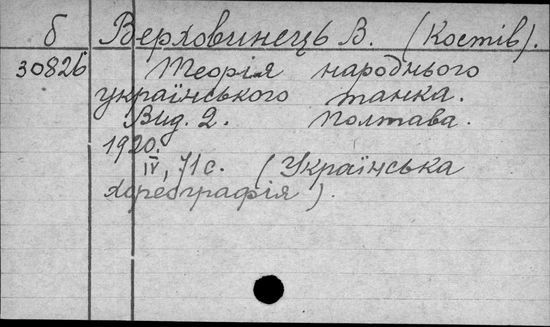 б Верховинець В. (Костів).
30826 Теорія народнього
українського танка.
Вид. 2. Полтава.
1920.
IV, 71 с. (Українська
хореографія).